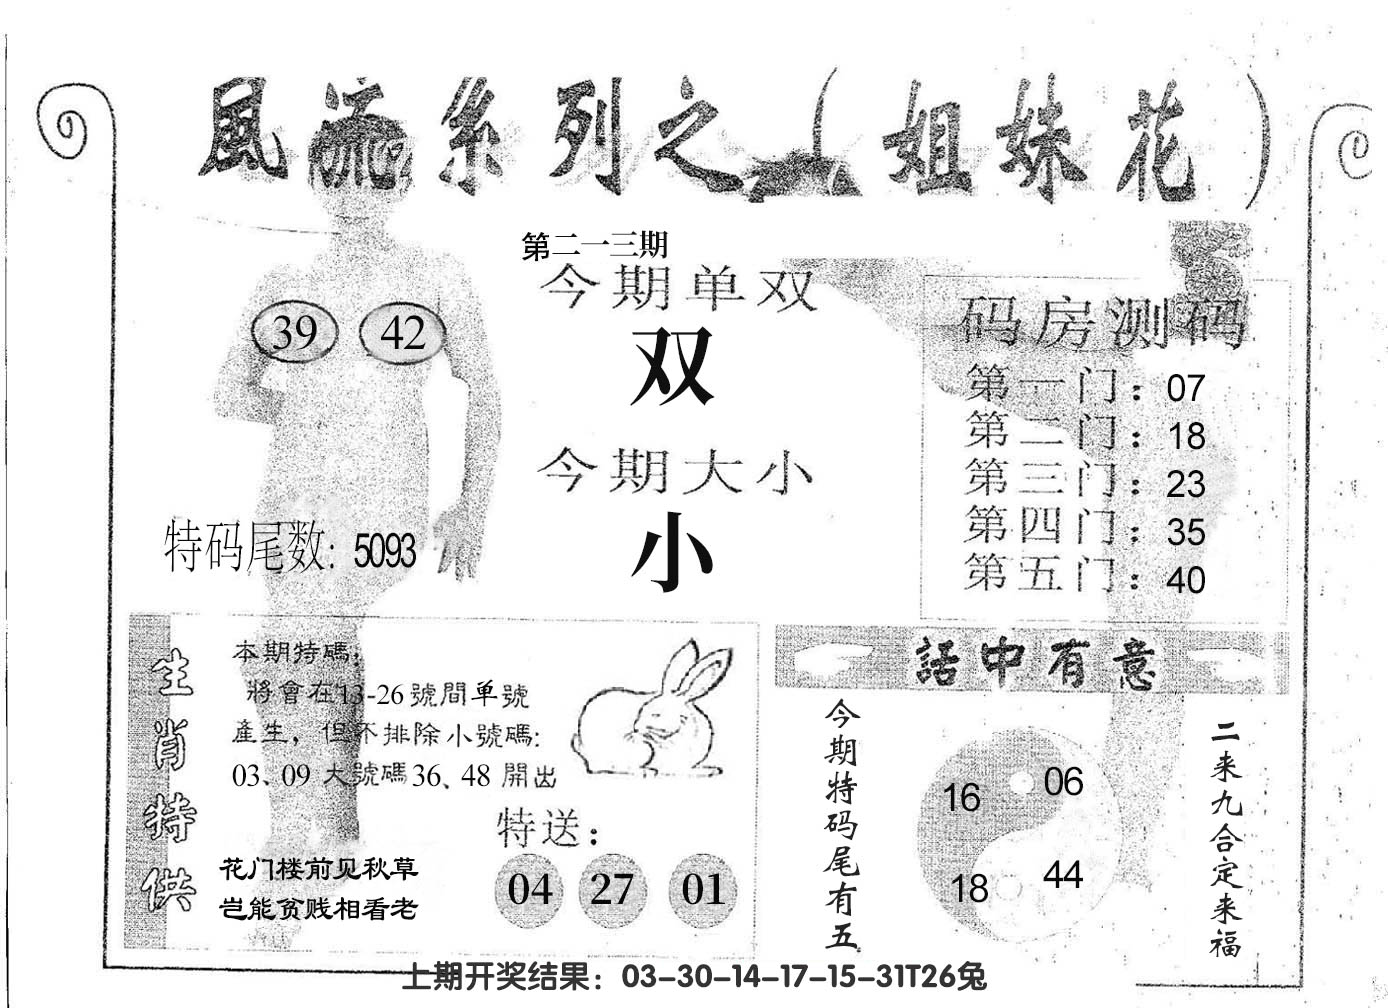 風流系列之（姐妹花）
第二一三期
今期单双
双
今期大小
小
39 42
特码尾数: 5093
码房测码
第一门：07
第二门：18
第三门：23
第四门：35
第五门：40
生肖特供
本期特碼:
將會在13-26號間单號
產生，但不排除小號碼:
03、09 大號碼36、48開出
特送：
04 27 01
花门楼前见秋草
岂能贫贱相看老
話中有意
今期特码尾有五
16 06
18 44
二来九合定来福
上期开奖结果：03-30-14-17-15-31T26兔